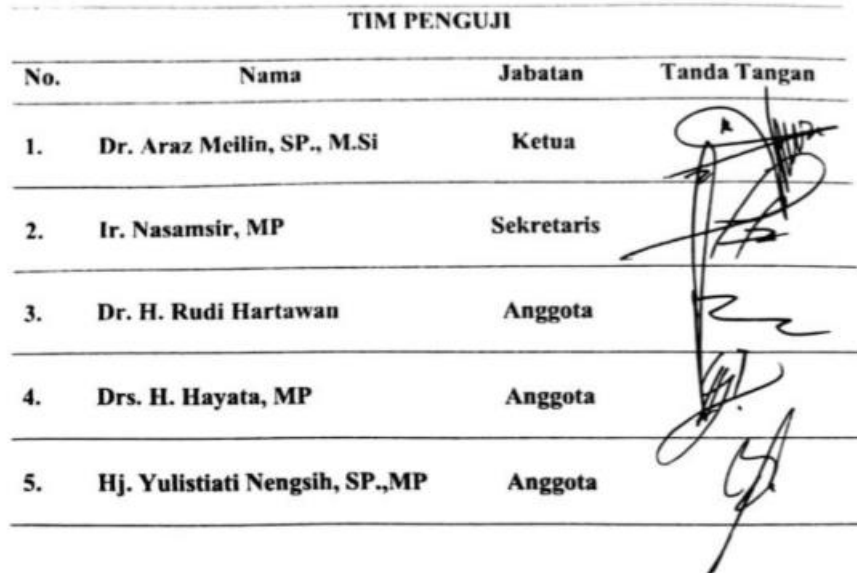 TIM PENGUJI
No. Nama Jabatan Tanda Tangan
1. Dr. Araz Meilin, SP., M.Si Ketua
2. Ir. Nasamsir, MP Sekretaris
3. Dr. H. Rudi Hartawan Anggota
4. Drs. H. Hayata, MP Anggota
5. Hj. Yulistiati Nengsih, SP.,MP Anggota